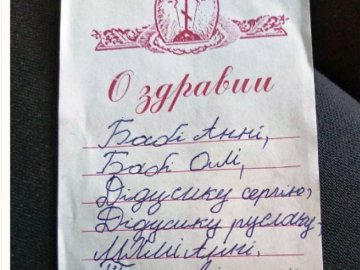 О здравии
Бабі Анні,
Бабі Олі,
Дідусику сергію,
Дідусику руслану,
Мамі Анні,